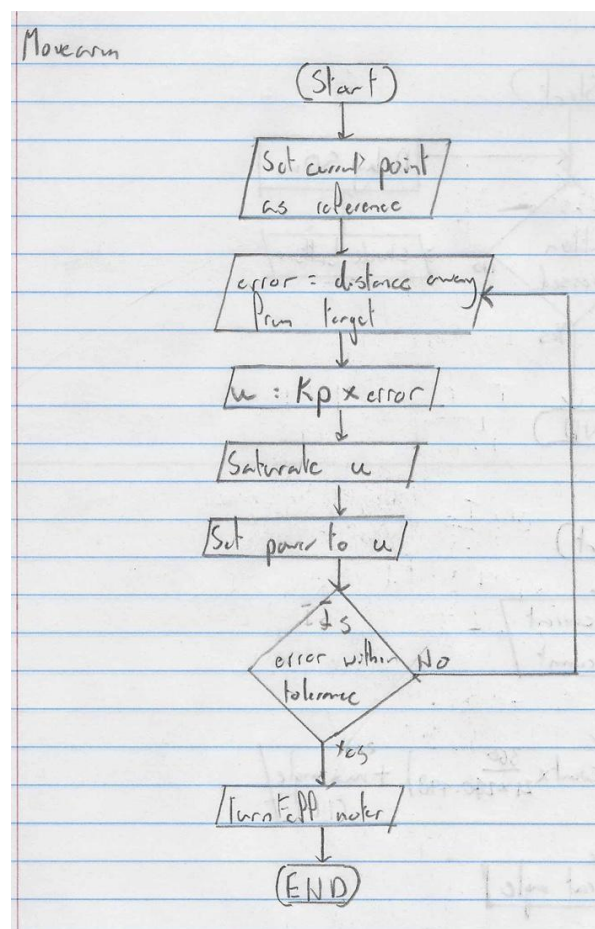 Movearm
(Start)
Set current point
as reference
error = distance away
from target
u = Kp x error
Saturate u
Set power to u
Is
error within
tolerance
No
Yes
Turn off motor
(END)